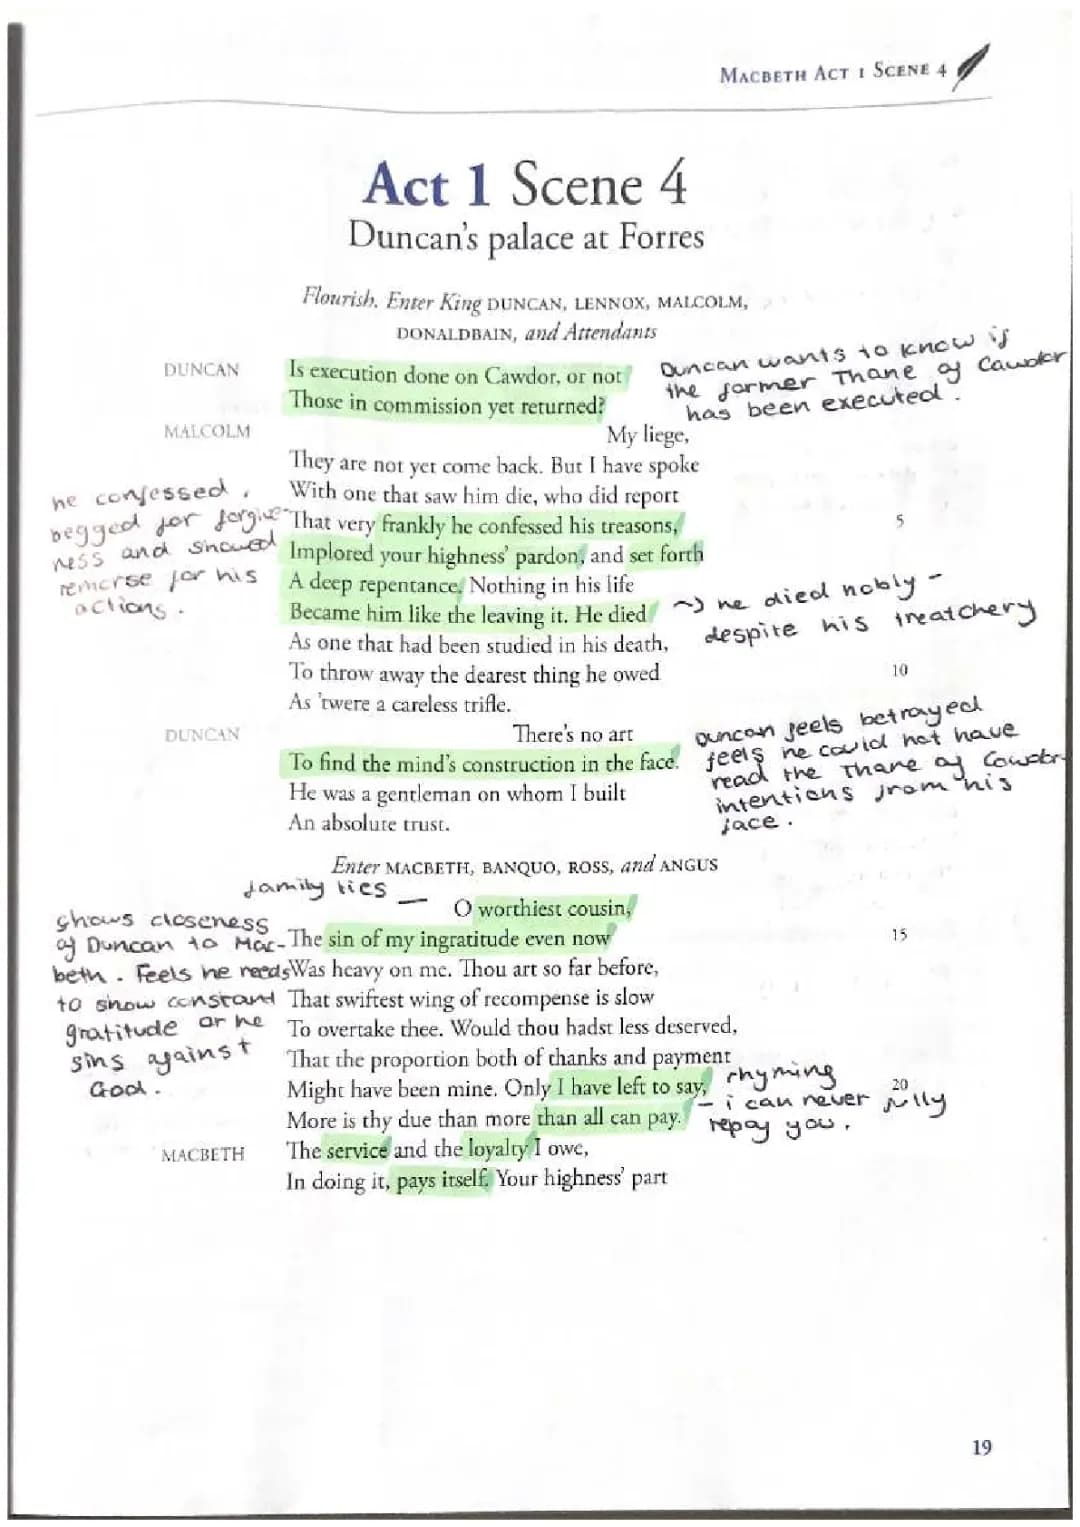 MACBETH ACT 1 SCENE 4
Act 1 Scene 4
Duncan's palace at Forres
Flourish. Enter King DUNCAN, LENNOX, MALCOLM,
DONALDBAIN, and Attendants
DUNCAN Is execution done on Cawdor, or not
Those in commission yet returned?
Duncan wants to know if
the former Thane of Cawdor
has been executed.
MALCOLM My liege,
They are not yet come back. But I have spoke
With one that saw him die, who did report
That very frankly he confessed his treasons, 5
Implored your highness' pardon, and set forth
A deep repentance. Nothing in his life
Became him like the leaving it. He died
As one that had been studied in his death,
To throw away the dearest thing he owed 10
As 'twere a careless trifle.
he confessed,
begged for forgive-
ness and showed
remorse for his
actions.
he died nobly -
despite his treatchery
DUNCAN There's no art
To find the mind's construction in the face.
He was a gentleman on whom I built
An absolute trust.
Duncan feels betrayed
feels he could not have
read the Thane of Cawdor
intentions from his
face.
Enter MACBETH, BANQUO, ROSS, and ANGUS
family ties
O worthiest cousin,
The sin of my ingratitude even now 15
Was heavy on me. Thou art so far before,
That swiftest wing of recompense is slow
To overtake thee. Would thou hadst less deserved,
That the proportion both of thanks and payment
Might have been mine. Only I have left to say, 20
More is thy due than more than all can pay.
shows closeness
of Duncan to Mac-
beth. Feels he needs
to show constant
gratitude or he
sins against
God.
rhyming
- i can never fully
repay you.
MACBETH The service and the loyalty I owe,
In doing it, pays itself. Your highness' part
19